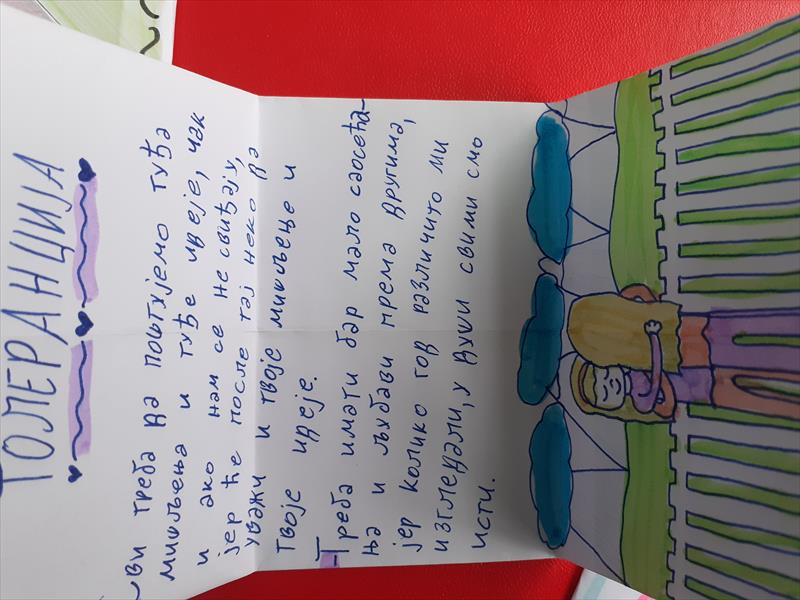 ТОЛЕРАНЦИЈА
~ви треба да поштујемо туђа
мишљења и туђе идеје, чак
и ако нам се не свиђају,
јер ће после тај неко да
уважи и твоје мишљење и
твоје идеје.
Треба имати бар мало саосећа-
ња и љубави према другима,
јер колико год различито ми
изгледали, у души свими смо
исти.